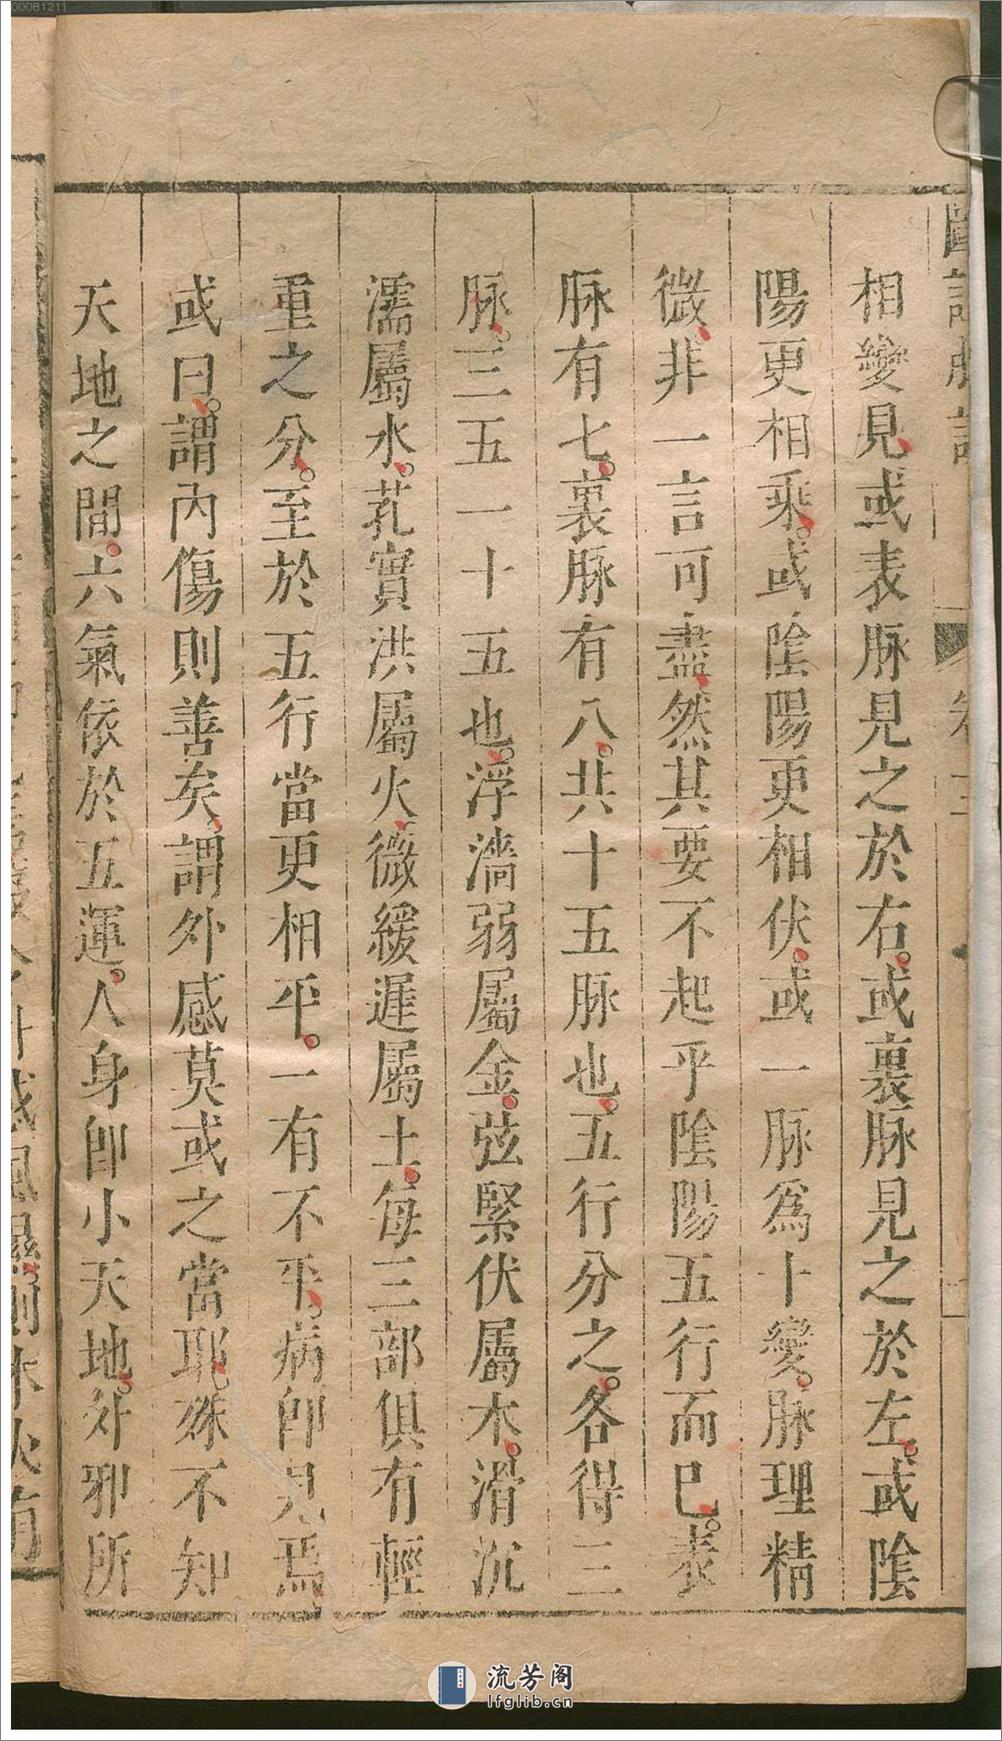 相變見或表脉見之於右或裏脉見之於左或陰
陽更相乘或陰陽更相伏或一脉爲十變脉理精
微非一言可盡然其要不起乎陰陽五行而已表
脉有七裏脉有八共十五脉也五行分之各得三
脉三五一十五也浮濇弱屬金弦緊伏屬木滑沉
濡屬水芤實洪屬火微緩遲屬土每三部俱有輕
重之分至於五行當更相平一有不平病卽見焉
或曰謂內傷則善矣謂外感莫或之當耶殊不知
天地之間六氣依於五運人身卽小天地外邪所
流芳阁
lfglib.cn
00081211